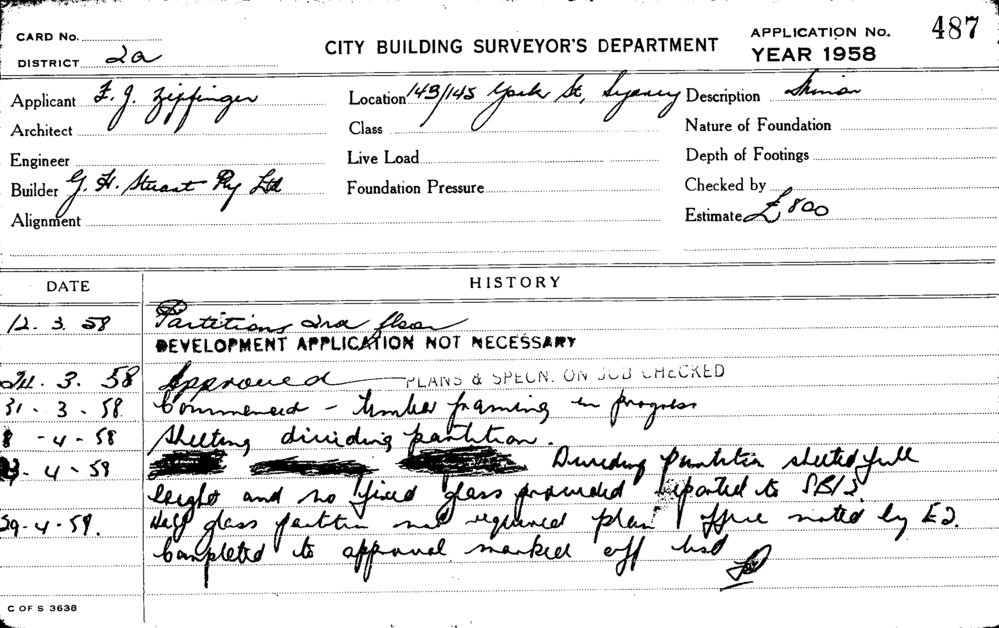 CARD No.
DISTRICT 2a
CITY BUILDING SURVEYOR'S DEPARTMENT
APPLICATION No. 487
YEAR 1958
Applicant F. J. Zipfinger
Location 143/145 York St, Sydney
Description
Architect
Class
Nature of Foundation
Engineer
Live Load
Depth of Footings
Builder G. H. Stuart Pty Ltd
Foundation Pressure
Checked by
Alignment
Estimate £800
DATE
HISTORY
12. 3. 58 Partitions 2nd floor
DEVELOPMENT APPLICATION NOT NECESSARY
. 3. 58 Approved PLANS & SPECN. ON JOB CHECKED
31 - 3 - 58. Commenced - timber framing in progress
8 - 4 - 58 Sheeting dividing partition.
- 4 - 58 Dividing partition sheeted full
height and no fixed glass provided reported to
29-4-58. Half glass partition not required plan office noted by
Completed to approval marked off list
C OF S 3638